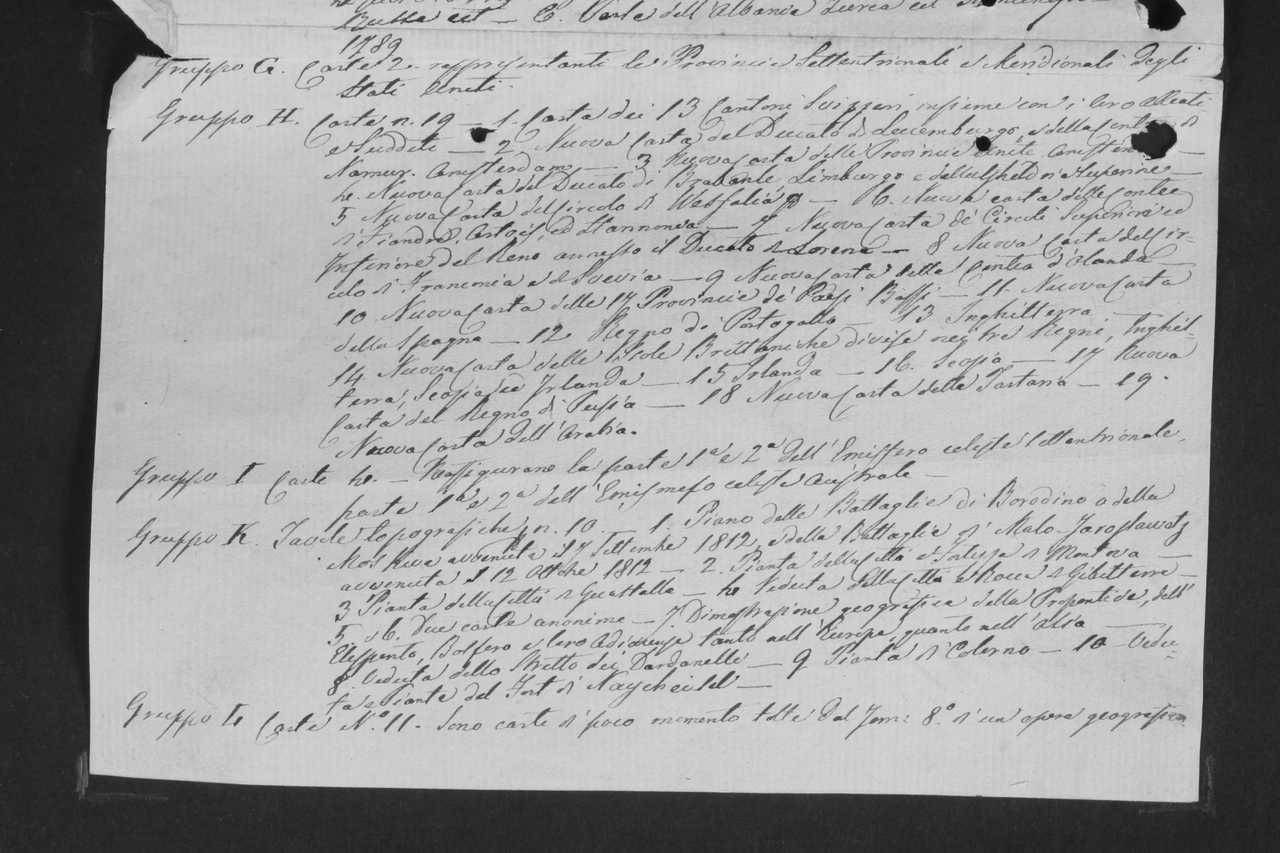 1789
Gruppo G. Carte 2. rappresentanti le Provincie Settentrionali e Meridionali degli
Stati Veneti.
Gruppo H. Carte n. 19 — 1. Carta dei 13 Cantoni Svizzeri, insieme con i loro alleati
e Sudditi — 2 Nuova Carta del Ducato di Lucemburgo, e della Contea di
Namur. Amsterdam — 3 Nuova Carta delle Provincie Unite
4. Nuova Carta del Ducato di Brabante Limburgo e
5 Nuova Carta del Circolo di Westfalia — 6. Nuova carta delle contee
di Fiandre, Artois, ed Hannonia — 7 Nuova Carta de Circoli Superiore ed
Inferiore del Reno annesso il Ducato di Lorena — 8 Nuova Carta del Cir-
colo di Franconia e di Svevia — 9 Nuova Carta della Contea d'Olanda —
10 Nuova Carta delle 17 Provincie de Paesi Bassi — 11. Nuova Carta
della Spagna — 12. Regno di Portogallo — 13 Inghilterra —
14. Nuova Carta delle Isole Brittaniche divise nei tre Regni, Inghil-
terra, Scozia ed Irlanda — 15 Irlanda — 16. Scozia — 17 Nuova
Carta del Regno di Persia — 18 Nuova Carta della Tartaria — 19.
Nuova Carta dell'Arabia.
Gruppo I Carte 4. — Raffigurano la parte 1a e 2a dell'Emisfero celeste settentrionale,
parte 1a e 2a dell'Emisfero celeste Australe —
Gruppo K. Tavole topografiche n. 10. — 1. Piano delle Battaglie di Borodino o della
Moskwa avvenuta il 7 Settembre 1812, e della Battaglia di Malo-Jaroslawetz
avvenuta il 12 Ottobre 1812 — 2. Pianta della città e Fortezza di Mantova —
3 Pianta della città di Guastalla — 4 Veduta della città e Rocca di Gibilterra —
5. e 6. Due carte anonime — 7. Dimostrazione geografica della Propontide, dell'
Elesponto, Bosforo e loro adiacenze tanto nell'Europa, quanto nell'Asia —
8 Veduta dello Stretto dei Dardanelli — 9 Pianta di Colorno — 10 Vedu-
ta e Pianta del Fort di
Gruppo L Carte N.o 11. Sono carte di poco momento tolte dal Tom: 8.o di un'opera geografica